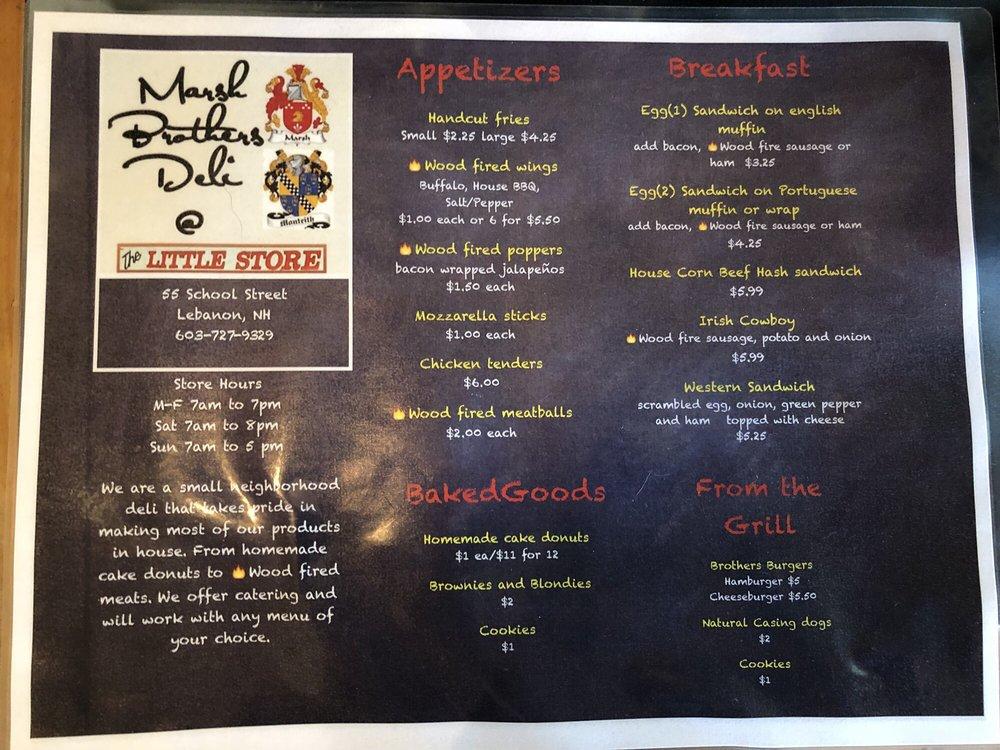 Marsh
Brothers
Deli
Marsh
Monteith
@
The LITTLE STORE
55 School Street
Lebanon, NH
603-727-9329
Store Hours
M-F 7am to 7pm
Sat 7am to 8pm
Sun 7am to 5 pm
We are a small neighborhood
deli that takes pride in
making most of our products
in house. From homemade
cake donuts to 🔥Wood fired
meats. We offer catering and
will work with any menu of
your choice.
Appetizers
Handcut fries
Small $2.25 large $4.25
🔥Wood fired wings
Buffalo, House BBQ,
Salt/Pepper
$1.00 each or 6 for $5.50
🔥Wood fired poppers
bacon wrapped jalapeños
$1.50 each
Mozzarella sticks
$1.00 each
Chicken tenders
$6.00
🔥Wood fired meatballs
$2.00 each
BakedGoods
Homemade cake donuts
$1 ea/$11 for 12
Brownies and Blondies
$2
Cookies
$1
Breakfast
Egg(1) Sandwich on english
muffin
add bacon, 🔥Wood fire sausage or
ham $3.25
Egg(2) Sandwich on Portuguese
muffin or wrap
add bacon, 🔥Wood fire sausage or ham
$4.25
House Corn Beef Hash sandwich
$5.99
Irish Cowboy
🔥Wood fire sausage, potato and onion
$5.99
Western Sandwich
scrambled egg, onion, green pepper
and ham topped with cheese
$5.25
From the
Grill
Brothers Burgers
Hamburger $5
Cheeseburger $5.50
Natural Casing dogs
$2
Cookies
$1